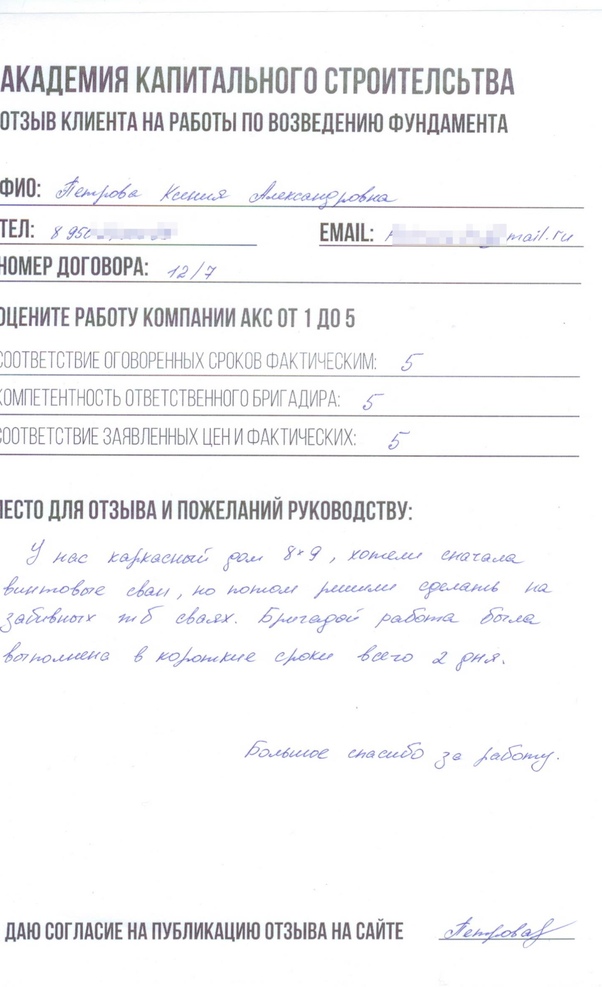 АКАДЕМИЯ КАПИТАЛЬНОГО СТРОИТЕЛСЬТВА
ОТЗЫВ КЛИЕНТА НА РАБОТЫ ПО ВОЗВЕДЕНИЮ ФУНДАМЕНТА
ФИО: Петрова Ксения Александровна
ТЕЛ: 8 950 EMAIL: mail.ru
НОМЕР ДОГОВОРА: 12/7
ОЦЕНИТЕ РАБОТУ КОМПАНИИ АКС ОТ 1 ДО 5
СООТВЕТСТВИЕ ОГОВОРЕННЫХ СРОКОВ ФАКТИЧЕСКИМ: 5
КОМПЕТЕНТНОСТЬ ОТВЕТСТВЕННОГО БРИГАДИРА: 5
СООТВЕТСТВИЕ ЗАЯВЛЕННЫХ ЦЕН И ФАКТИЧЕСКИХ: 5
МЕСТО ДЛЯ ОТЗЫВА И ПОЖЕЛАНИЙ РУКОВОДСТВУ:
У нас каркасный дом 8×9, хотели сначала
винтовые сваи, но потом решили сделать на
забивных жб сваях. Бригадой работа была
выполнена в короткие сроки всего 2 дня.
Большое спасибо за работу.
ДАЮ СОГЛАСИЕ НА ПУБЛИКАЦИЮ ОТЗЫВА НА САЙТЕ Петрова